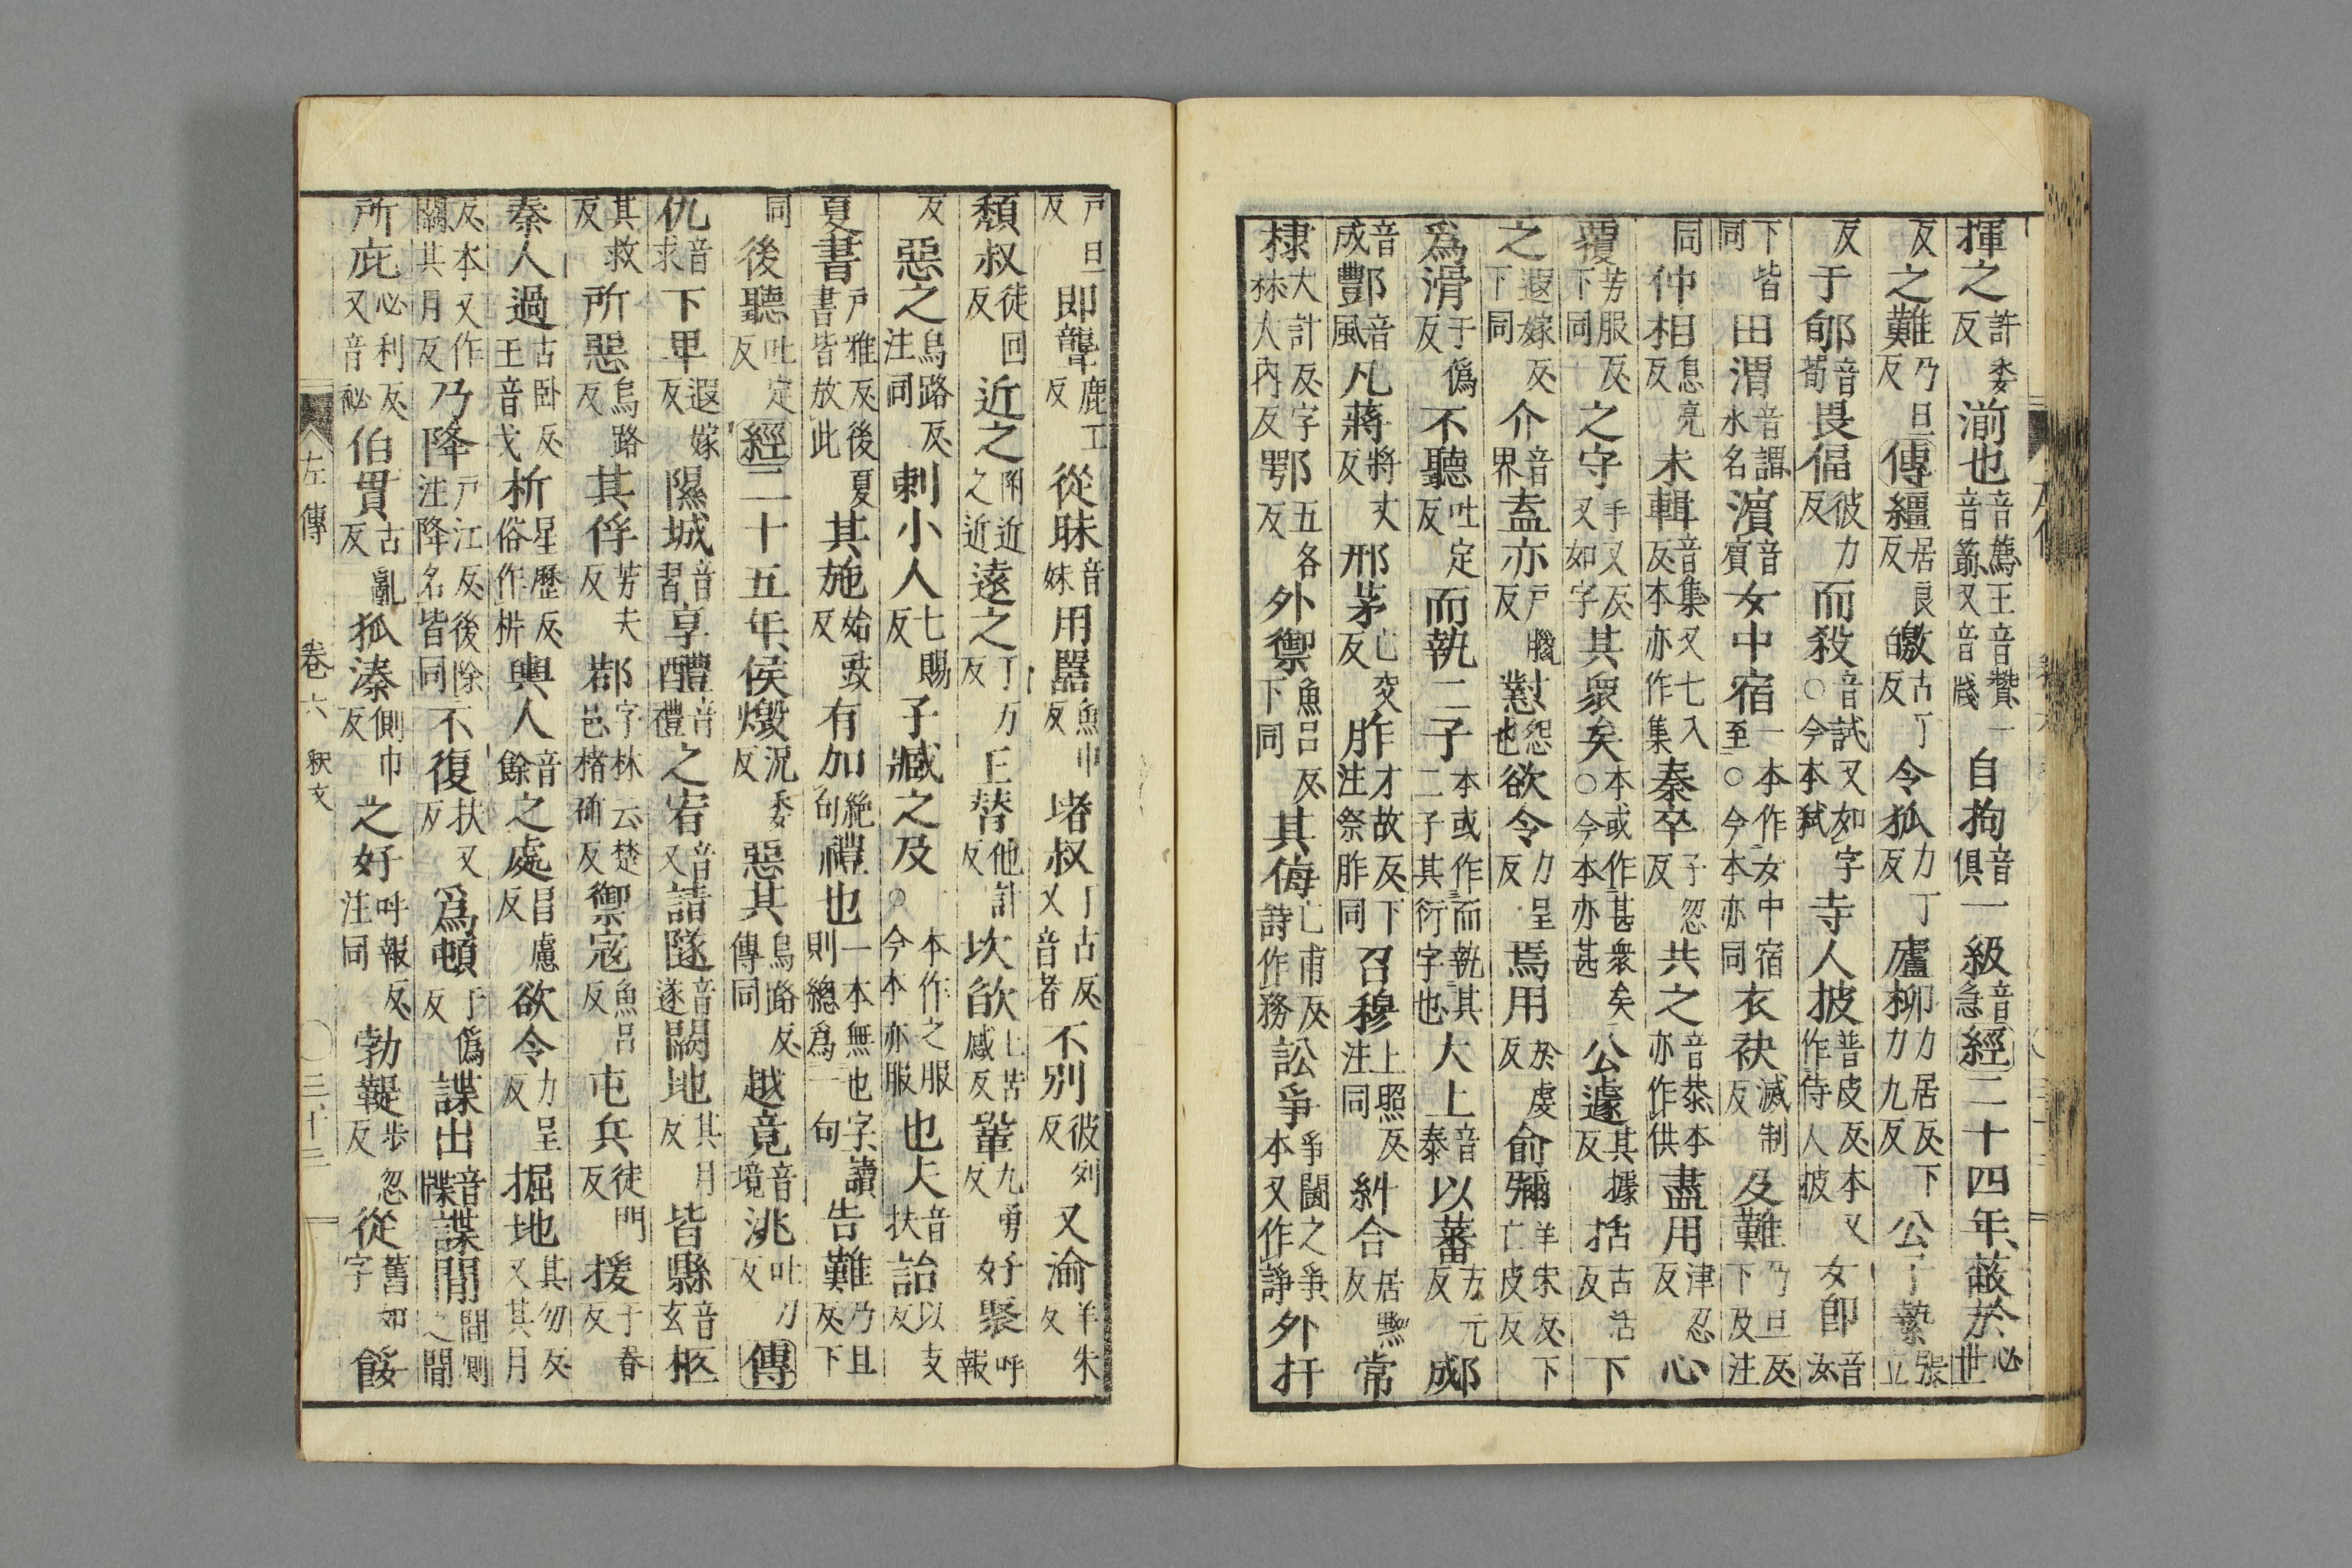 揮之許委反湔也音薦王音贊一音箭又音牋自拘音俱一級音急經二十四年蔽於必世
反之難乃旦反傳纆居良反皦古了反令狐力丁反廬柳力居反下力九反公子縶張立
反于郇音荀畏偪彼力反而殺音試又如字○今本弒寺人披普皮反本又作侍人披女即音汝
下皆同田渭音謂水名濱音賓女中宿一本作女中宿至○今本亦同衣袂滅制反及難乃旦反下及注
同仲相息亮反未輯音集又七入反本亦作集秦卒子忽反共之音恭本亦作供盡用津忍反心
覆芳服反下同之守手又反又如字其衆矣本或作甚衆矣○今本亦甚公遽其據反括古活反下
之遐嫁反下同介音界盍亦戶臘反懟怨也欲令力呈反焉用於虔反俞彌羊朱反下亡皮反
爲滑于僞反不聽吐定反而執二子本或作而執其二子其衍字也大上音泰以蕃方元反郕
音成酆音風凡蔣將丈反邢茅亡交反胙才故反下注祭胙同召穆上照反注同糾合居黝反常
棣大計反字林大內反鄂五各反外禦魚呂反下同其侮亡甫反詩作務訟爭爭鬭之爭本又作諍外扞
戶旦反即聾鹿工反從昧音妹用嚚魚巾反堵叔丁古反又音者不別彼列反又渝羊朱反
頹叔徒回反近之附近之近遠之丁万反王替他計反坎欿七苦慼反鞏九勇反好聚呼報
反惡之烏路反注同刺小人七賜反子臧之及○今本亦服本作之服也夫音扶詒以支反
夏書戶雅反後夏書皆放此其施始豉反有加絶句禮也一本無也字讀則總爲一句告難乃旦反下
同後聽吐定反經二十五年侯燬況委反惡其烏路反傳同越竟音境洮吐刀反傳
仇音求下卑遐嫁反隰城音習享醴音禮之宥音又請隧音遂闕地其月反皆縣音玄柩
其救反所惡烏路反其俘芳夫反鄀字林云楚邑楮斫反禦寇魚呂反屯兵徒門反援于眷反
秦人過古臥反王音戈析星歷反俗作枡輿人音餘之處昌慮反欲令力呈反掘地其勿反又其月
反本又作闕其月反乃降戶江反後除注降名皆同不復扶又反爲頓于僞反諜出音牒諜間間廁之間
所庇必利反又音祕伯貫古亂反狐溱側巾反之好呼報反注同勃鞮步忽反從舊如字餒
左傳 卷六 釈文 三十三